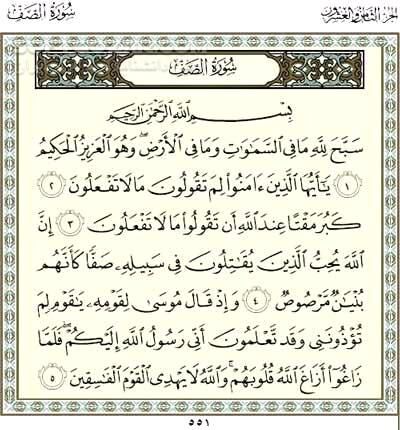 سُورَةُ الصَّفِّ
الجزء الثامن والعشرون
سُورَةُ الصَّفِّ
بِسْمِ اللَّهِ الرَّحْمَٰنِ الرَّحِيمِ
سَبَّحَ لِلَّهِ مَا فِي السَّمَاوَاتِ وَمَا فِي الْأَرْضِ ۖ وَهُوَ الْعَزِيزُ الْحَكِيمُ
١ يَا أَيُّهَا الَّذِينَ ءَامَنُوا لِمَ تَقُولُونَ مَا لَا تَفْعَلُونَ ٢
كَبُرَ مَقْتًا عِندَ اللَّهِ أَن تَقُولُوا مَا لَا تَفْعَلُونَ ٣ إِنَّ
اللَّهَ يُحِبُّ الَّذِينَ يُقَاتِلُونَ فِي سَبِيلِهِ صَفًّا كَأَنَّهُم
بُنْيَانٌ مَّرْصُوصٌ ٤ وَإِذْ قَالَ مُوسَىٰ لِقَوْمِهِ يَا قَوْمِ لِمَ
تُؤْذُونَنِي وَقَد تَّعْلَمُونَ أَنِّي رَسُولُ اللَّهِ إِلَيْكُمْ ۖ فَلَمَّا
زَاغُوا أَزَاغَ اللَّهُ قُلُوبَهُمْ ۚ وَاللَّهُ لَا يَهْدِي الْقَوْمَ الْفَاسِقِينَ ٥
٥٥١